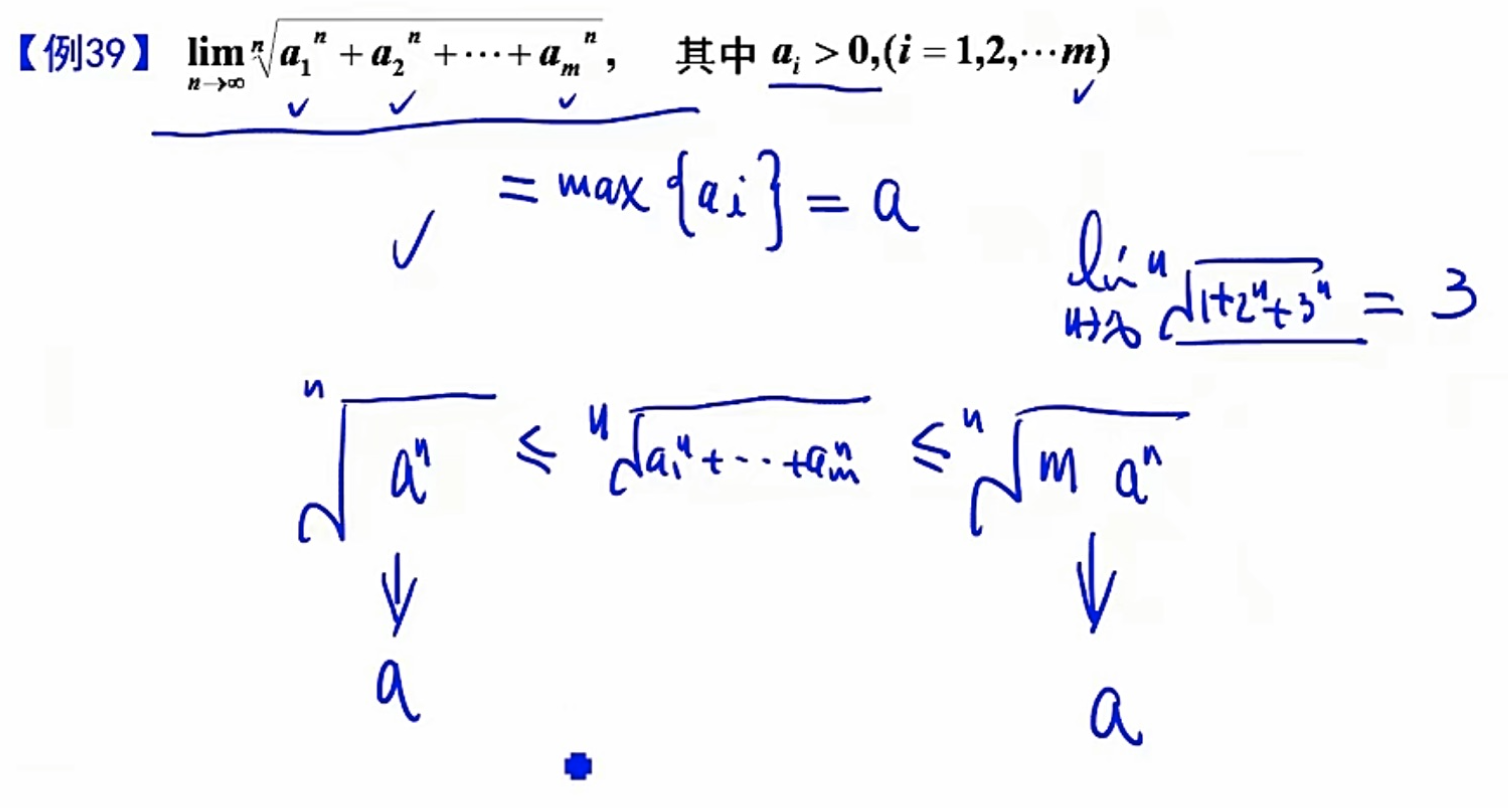 【例39】 lim_{n→∞} ⁿ√(a₁ⁿ + a₂ⁿ + ⋯ + a_mⁿ), 其中 aᵢ > 0,(i = 1,2,⋯m)
= max {ai} = a
lim_{n→∞} ⁿ√(1+2ⁿ+3ⁿ) = 3
ⁿ√(aⁿ) ≤ ⁿ√(a₁ⁿ+⋯+a_mⁿ) ≤ ⁿ√(m aⁿ)
↓ ↓
a a